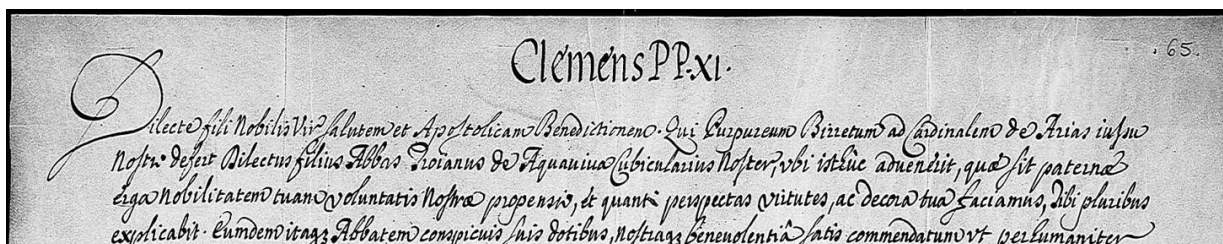 Clemens PP. XI.
.65.
Dilecte fili Nobilis Vir salutem et Apostolicam Benedictionem. Qui Purpureum Birretum ad Cardinalem de Arias iussu
Nostro defert Dilectus filius Abbas Troianus de Aquauiua Cubicularius Noster, vbi isthùc aduenerit, quæ sit paternæ
erga Nobilitatem tuam voluntatis Nostræ propensio, et quanti perspectas virtutes, ac decora tua faciamus, Tibi pluribus
explicabit. Eumdem itaq; Abbatem conspicuis suis dotibus, nostraq; beneuolentiâ satis commendatum vt perhumaniter